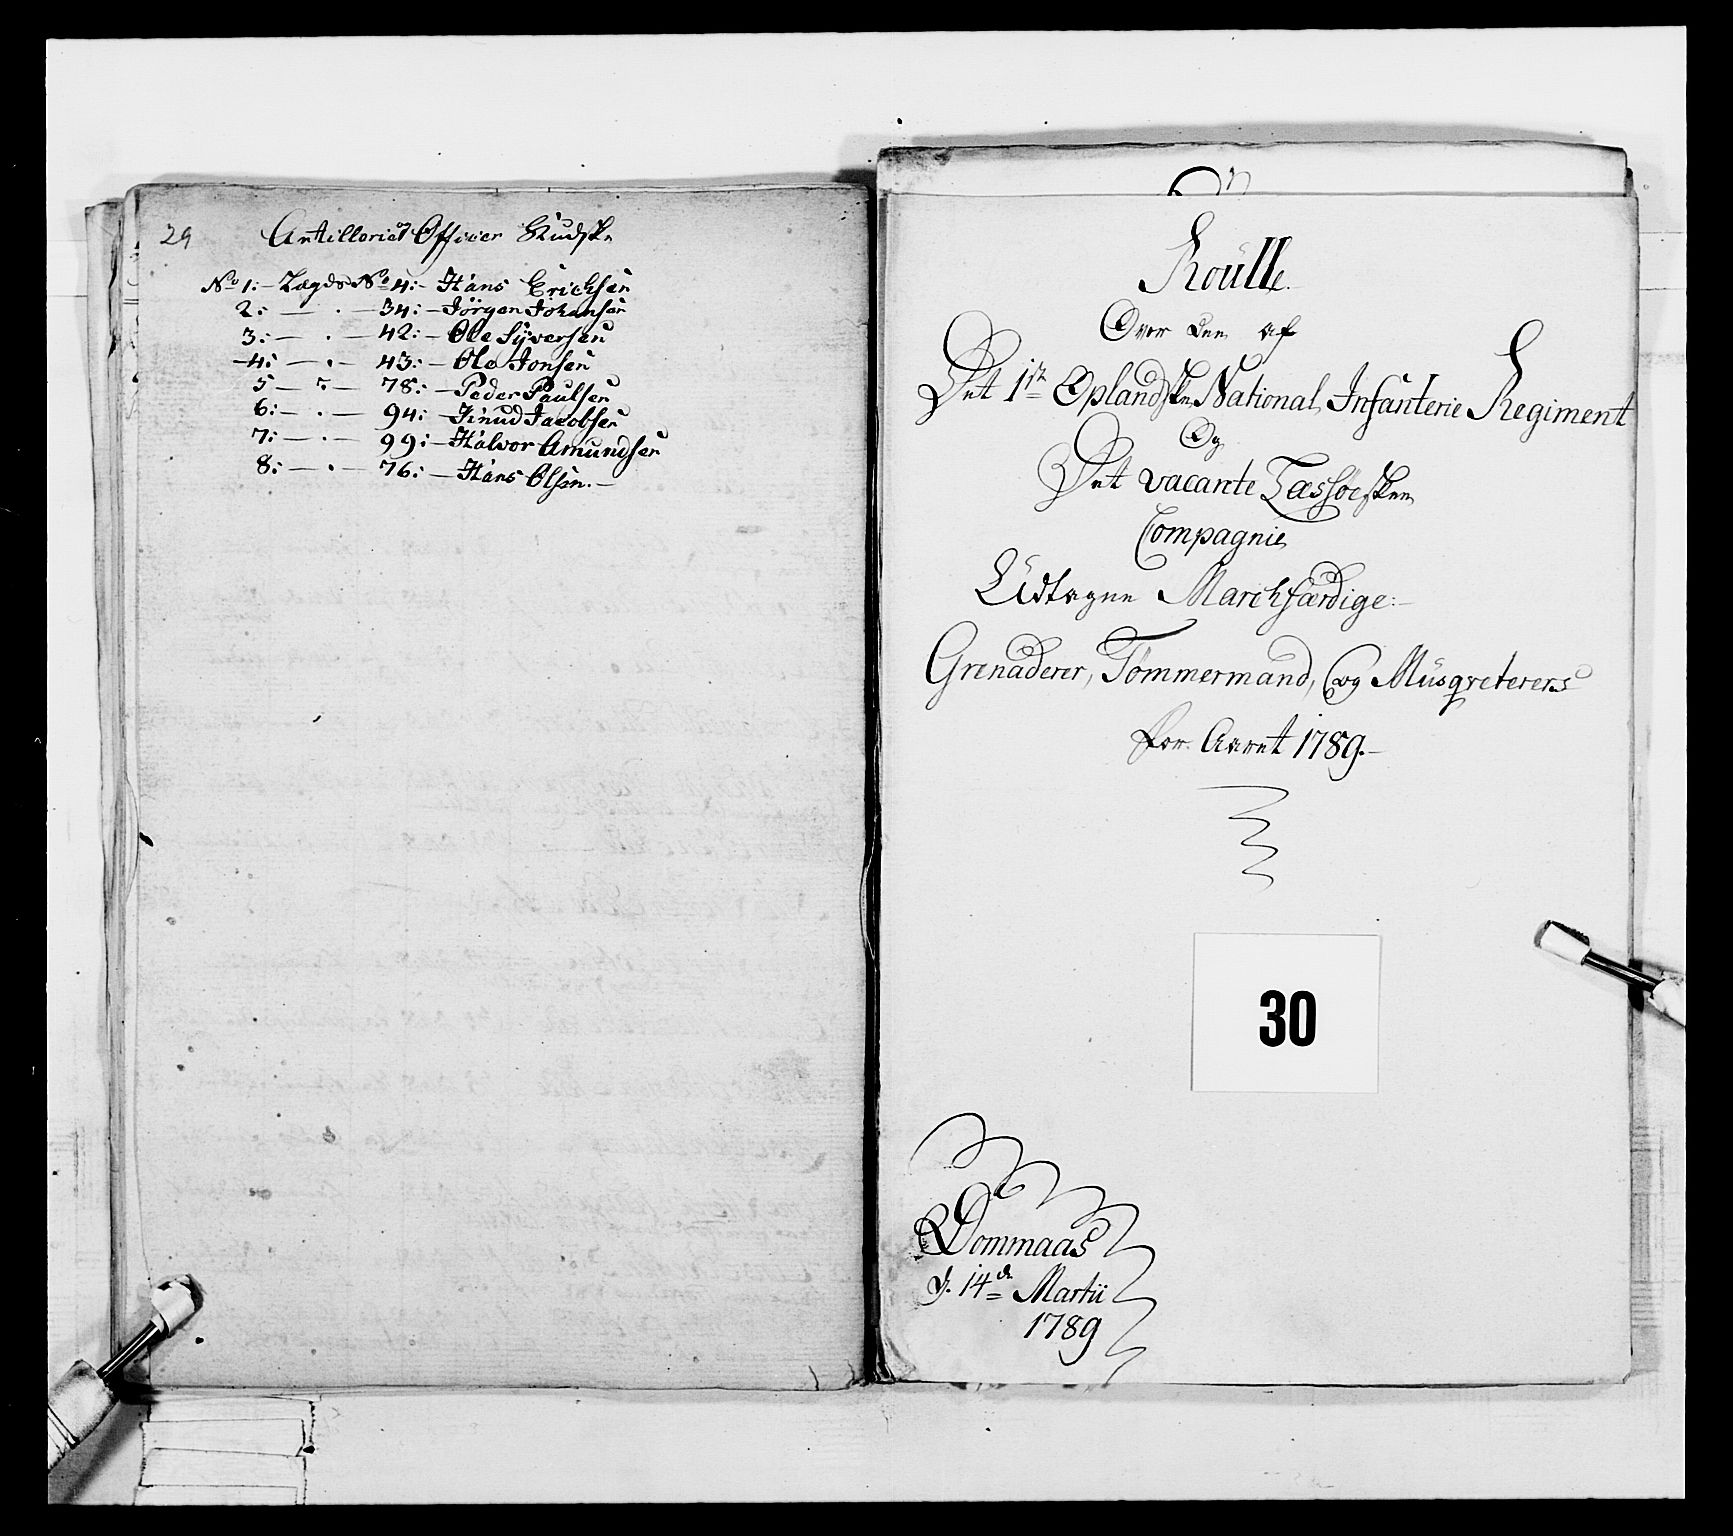 29
Artilleriet Officier Kudske
No 1:- Lægds No 4:- Hans Erichsen
2:- - 34:- Jörgen Johansen
3:- - 42:- Ole Syversen
4:- - 43:- Ole Jonsen
5 - - 78:- Peder Paulsen
6:- - 94:- Knud Jacobsen
7:- - 99:- Halvor Amundsen
8:- - 76:- Hans Olsen.-
Roulle.
Over den af
Det 1ste Oplandske National Infanterie Regiment
Og
Det vacante Læssöeske
Compagnie
Udtagne Marchfærdige:-
Grenaderer, Tömmermand, og Musqveterers
for Aaret 1789.-
30
Dommaas
d. 14de Martii
1789